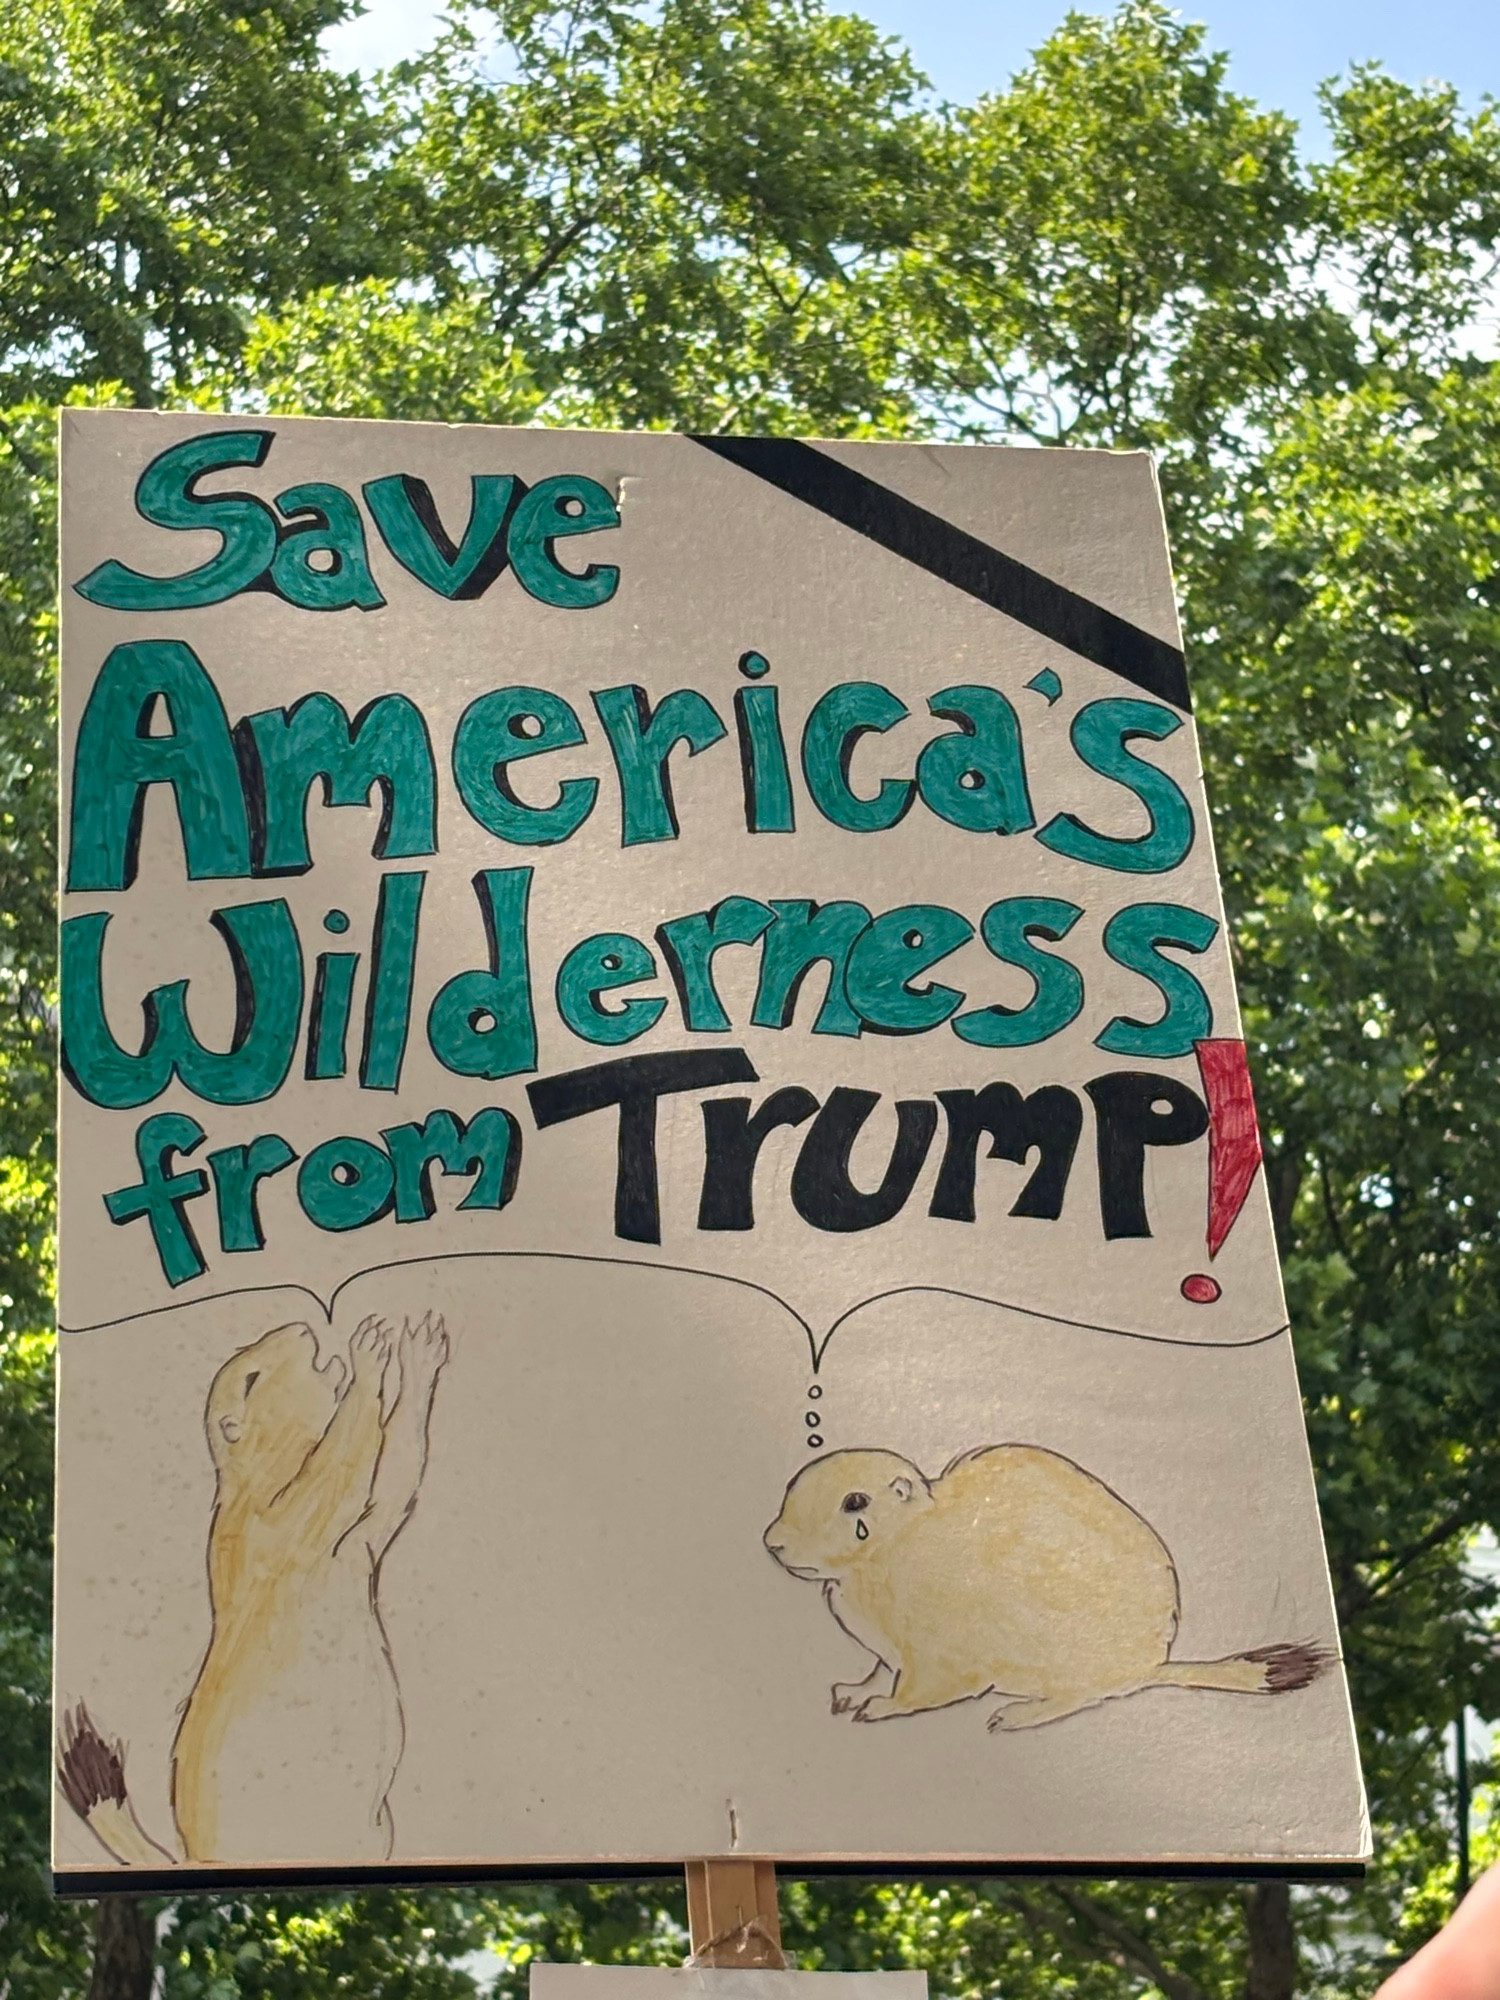 Save
America's
Wilderness
from Trump!